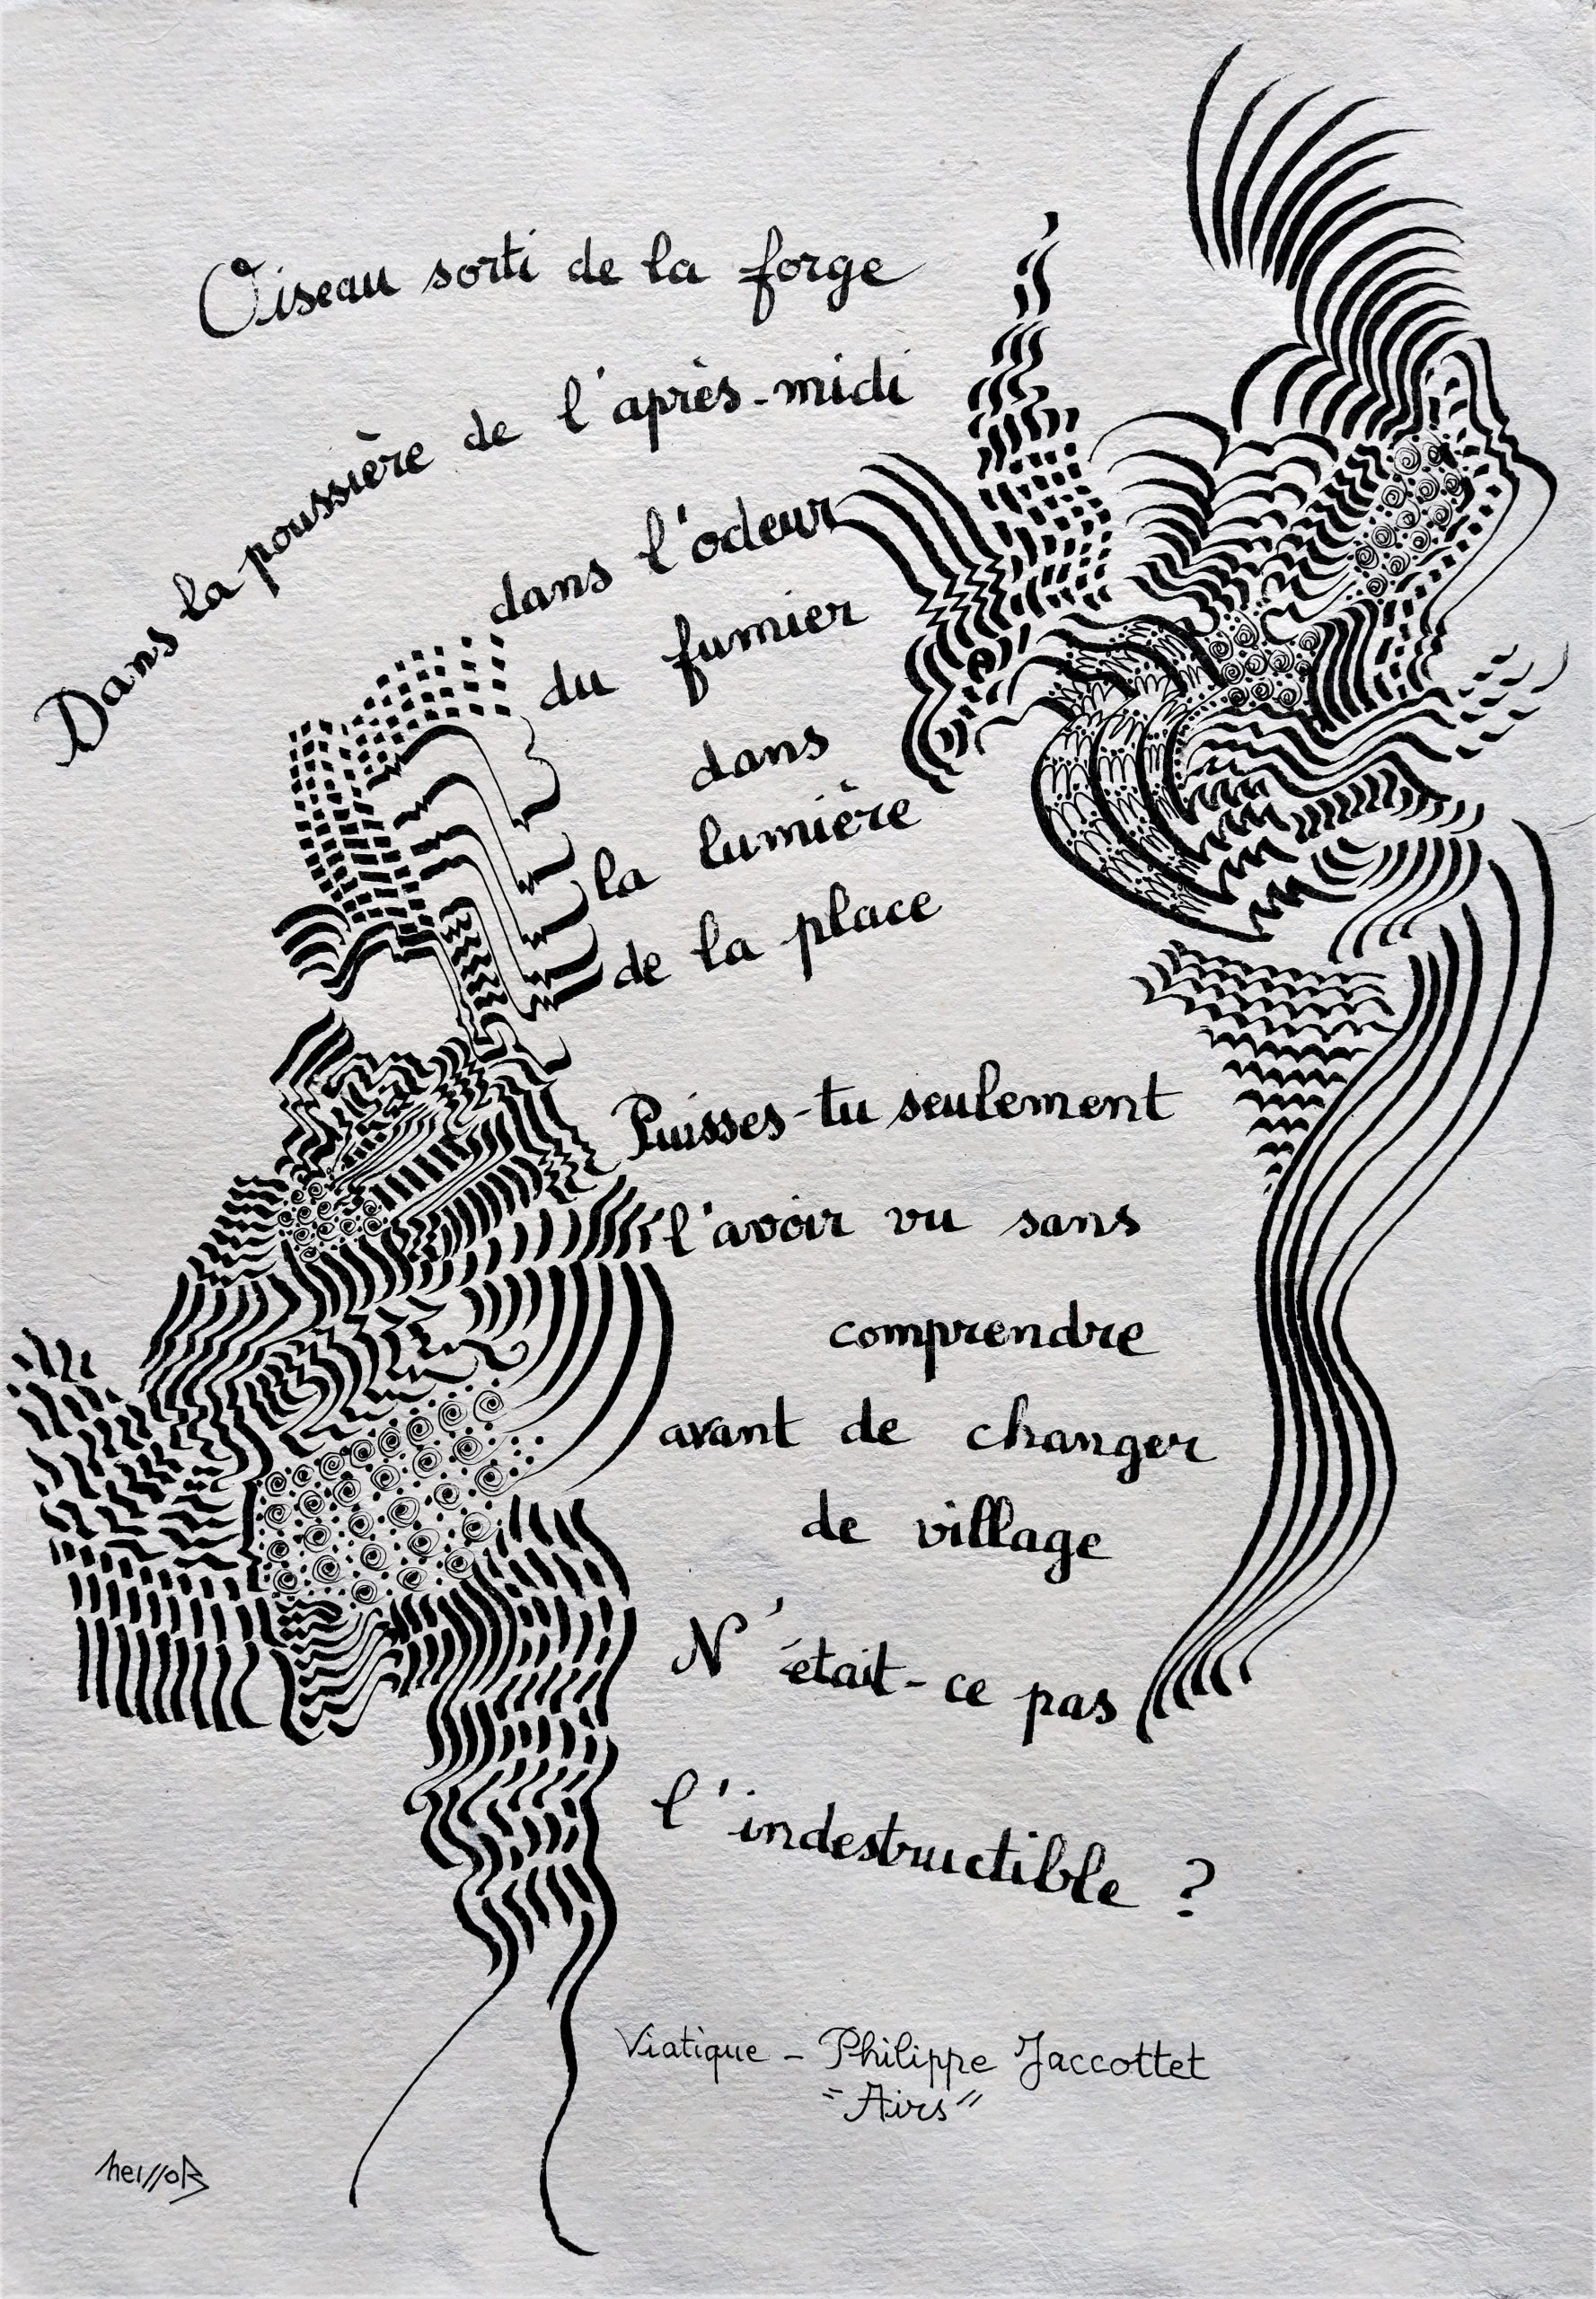 Oiseau sorti de la forge
Dans la poussière de l'après-midi
dans l'odeur
du fumier
dans
la lumière
de la place
Puisses-tu seulement
l'avoir vu sans
comprendre
avant de changer
de village
N'était-ce pas
l'indestructible ?
Viatique - Philippe Jaccottet
"Airs"